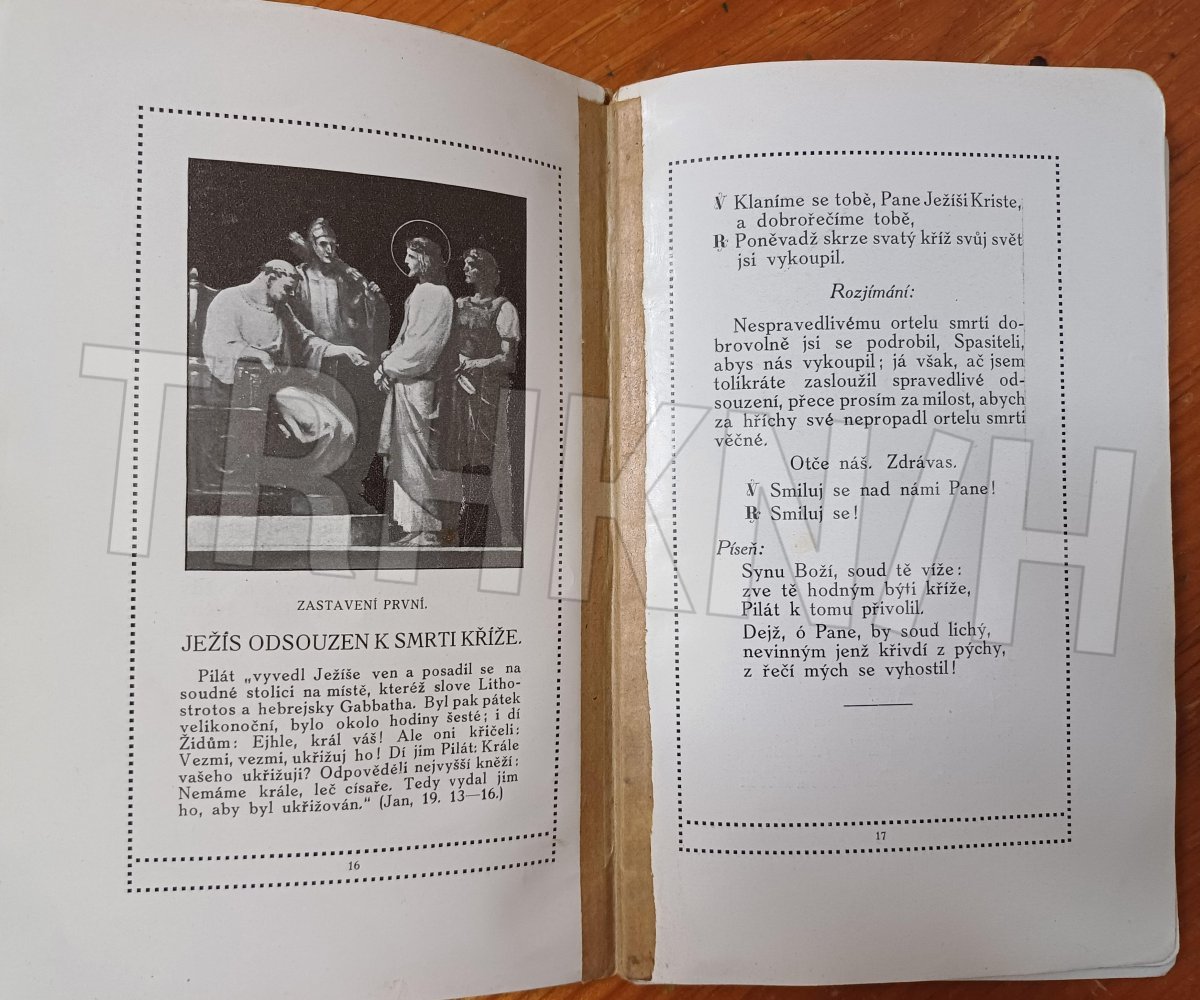 ZASTAVENÍ PRVNÍ.
JEŽÍS ODSOUZEN K SMRTI KŘÍŽE.
Pilát „vyvedl Ježíše ven a posadil se na
soudné stolici na místě, kteréž slove Litho-
strotos a hebrejsky Gabbatha. Byl pak pátek
velikonoční, bylo okolo hodiny šesté; i dí
Židům: Ejhle, král váš! Ale oni křičeli:
Vezmi, vezmi, ukřižuj ho! Dí jim Pilát: Krále
vašeho ukřižuji? Odpověděli nejvyšší kněží:
Nemáme krále, leč císaře. Tedy vydal jim
ho, aby byl ukřižován.“ (Jan, 19. 13—16.)
16
℣ Klaníme se tobě, Pane Ježíši Kriste,
a dobrořečíme tobě,
℟ Poněvadž skrze svatý kříž svůj svět
jsi vykoupil.
Rozjímání:
Nespravedlivému ortelu smrti do-
brovolně jsi se podrobil, Spasiteli,
abys nás vykoupil; já však, ač jsem
tolikráte zasloužil spravedlivé od-
souzení, přece prosím za milost, abych
za hříchy své nepropadl ortelu smrti
věčné.
Otče náš. Zdrávas.
℣ Smiluj se nad námi Pane!
℟ Smiluj se!
Píseň:
Synu Boží, soud tě víže:
zve tě hodným býti kříže,
Pilát k tomu přivolil.
Dejž, ó Pane, by soud lichý,
nevinným jenž křivdí z pýchy,
z řečí mých se vyhostil!
17
TRHKNIH